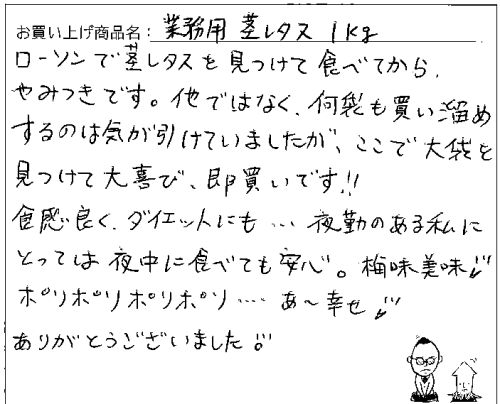 お買い上げ商品名： 業務用 茎レタス 1kg
ローソンで茎レタスを見つけて食べてから、
やみつきです。他ではなく、何袋も買い溜め
するのは気が引けていましたが、ここで大袋を
見つけて大喜び、即買いです!!
食感良く、ダイエットにも… 夜勤のある私に
とっては夜中に食べても安心。梅味美味!!
ポリポリポリポリ…. あ〜幸せ!!
ありがとうございました!!